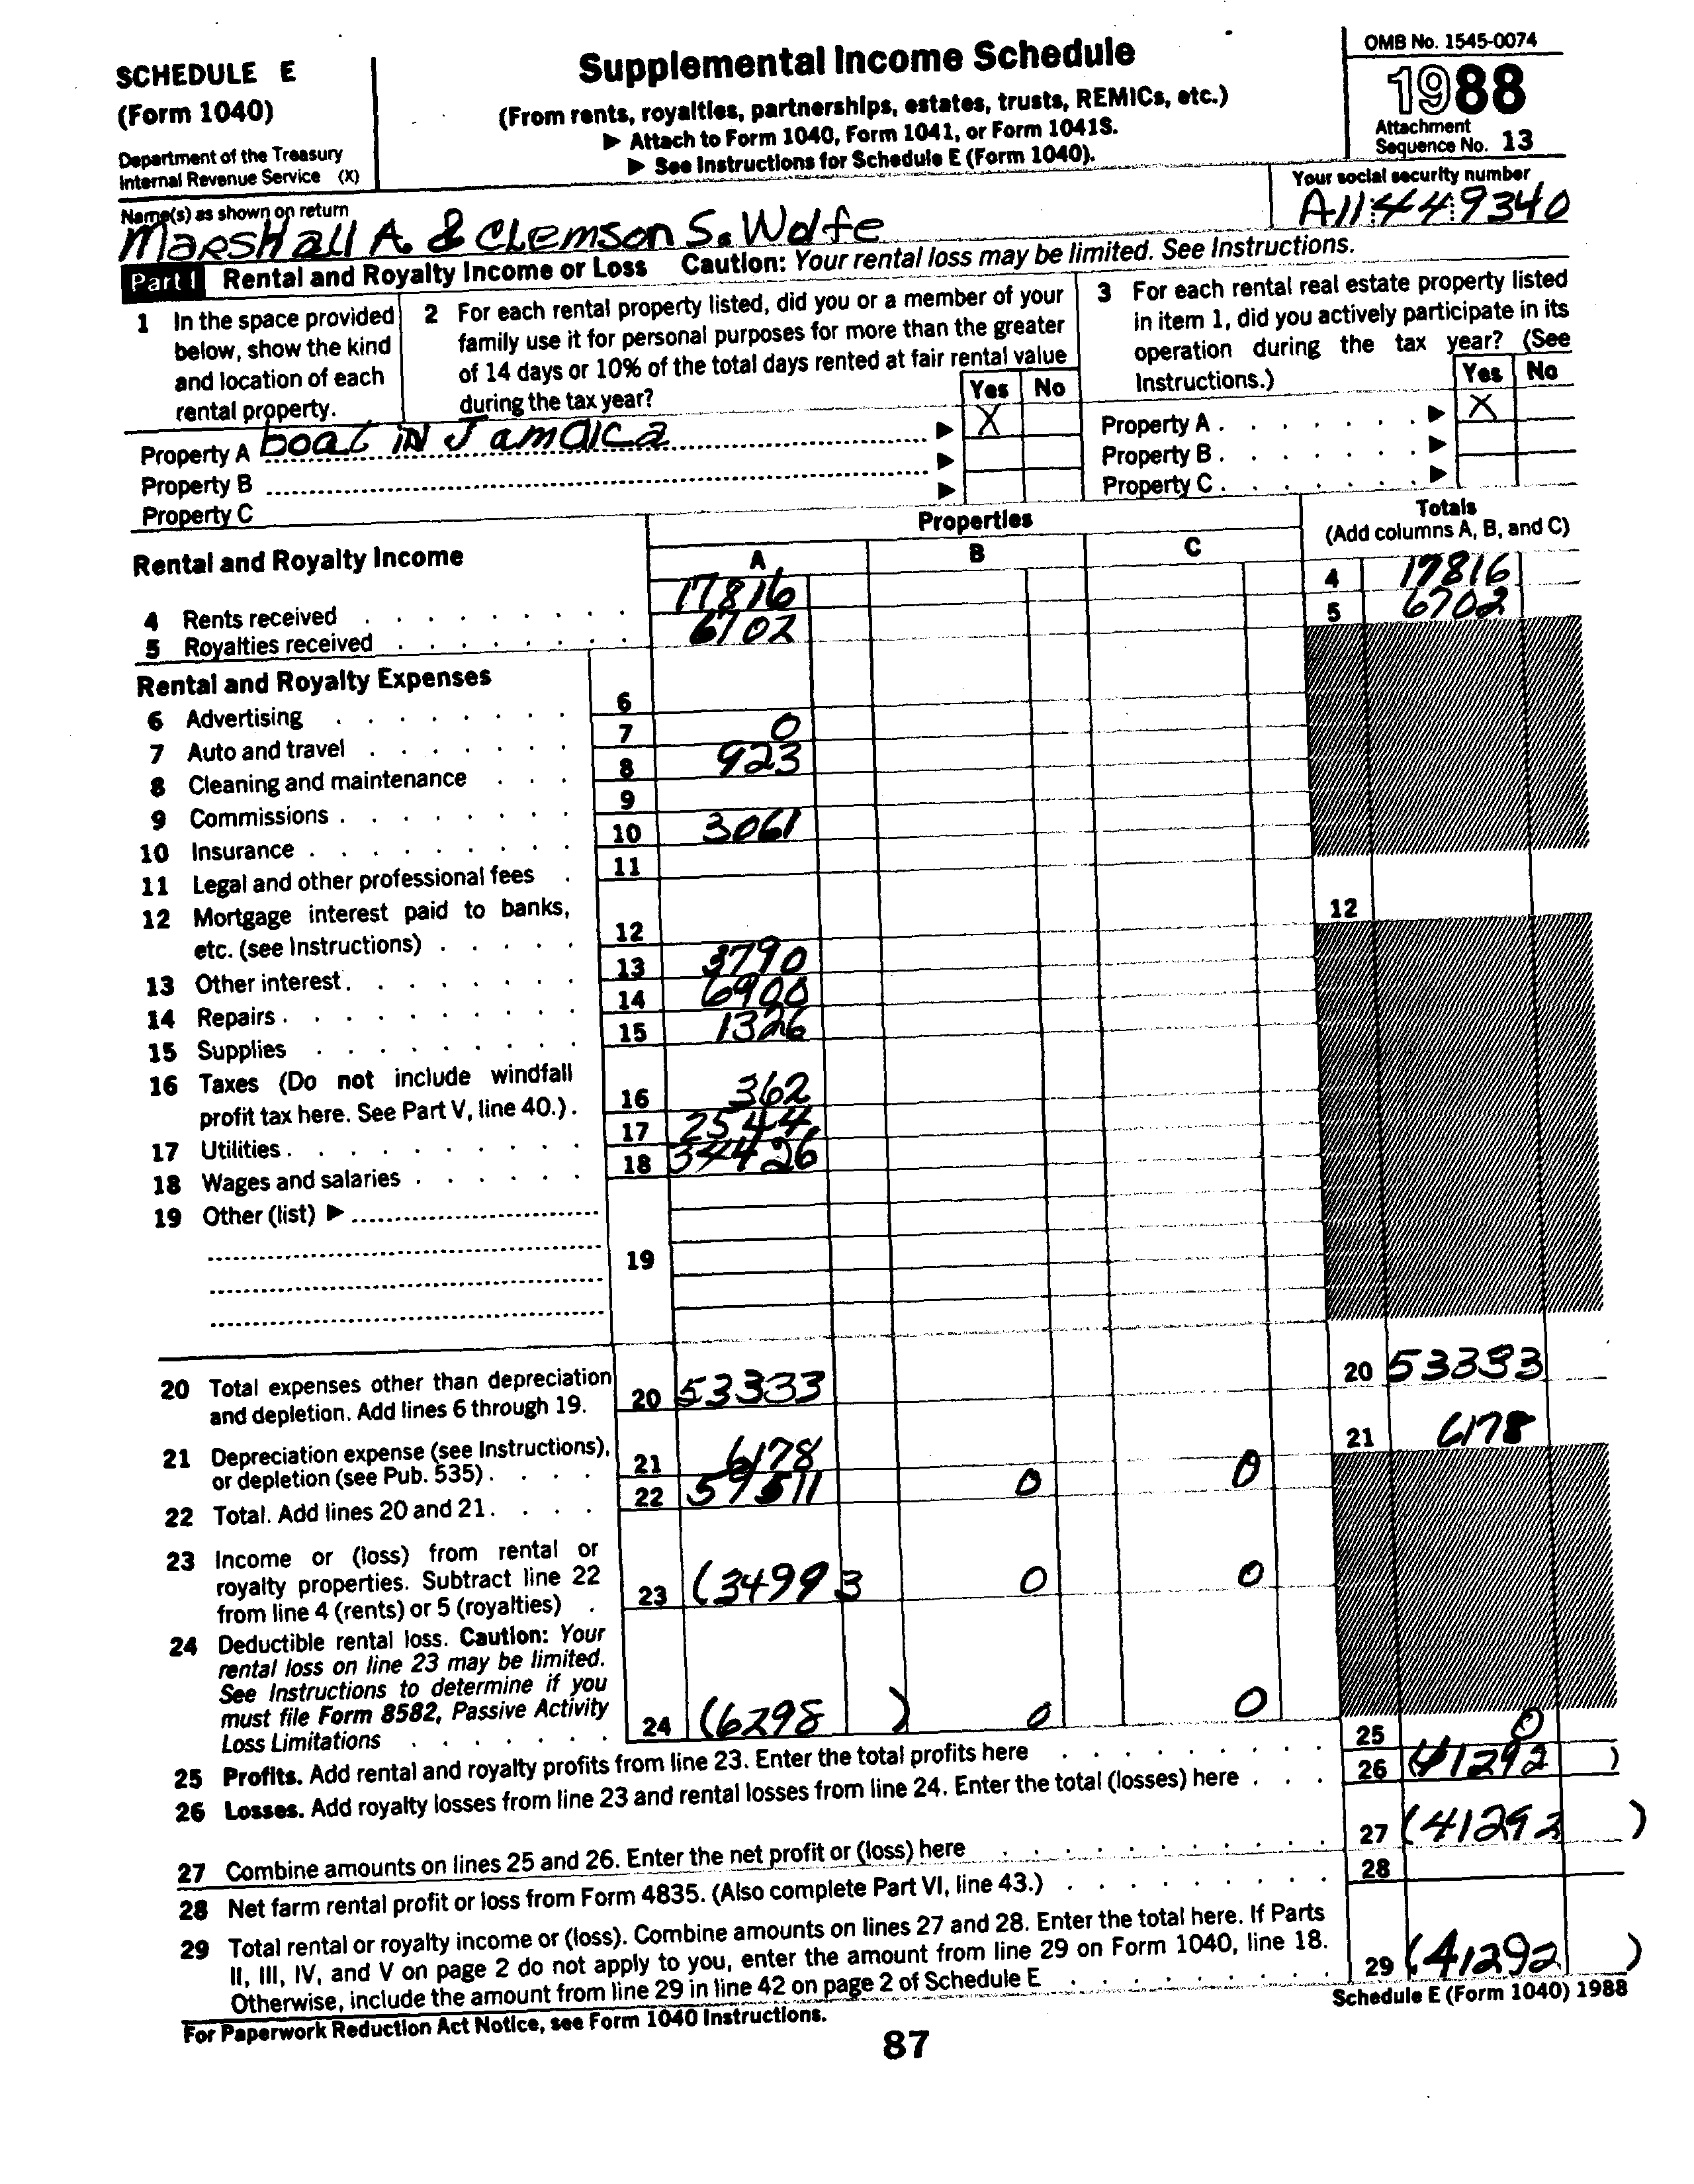 SCHEDULE E
(Form 1040)
Department of the Treasury
Internal Revenue Service (X)
Supplemental Income Schedule
(From rents, royalties, partnerships, estates, trusts, REMICs, etc.)
▶ Attach to Form 1040, Form 1041, or Form 1041S.
▶ See Instructions for Schedule E (Form 1040).
OMB No. 1545-0074
1988
Attachment
Sequence No. 13
Name(s) as shown on return
Marshall A. & Clemson S. Wolfe
Your social security number
A11449340
Part I Rental and Royalty Income or Loss Caution: Your rental loss may be limited. See Instructions.
1 In the space provided
below, show the kind
and location of each
rental property.
2 For each rental property listed, did you or a member of your
family use it for personal purposes for more than the greater
of 14 days or 10% of the total days rented at fair rental value
during the tax year?
Yes No
3 For each rental real estate property listed
in item 1, did you actively participate in its
operation during the tax year? (See
Instructions.)
Yes No
Property A boat in Jamaica ▶ X
Property B ▶
Property C ▶
Property A ▶ X
Property B ▶
Property C ▶
Rental and Royalty Income
Properties
A B C
Totals
(Add columns A, B, and C)
4 Rents received 17816 4 17816
5 Royalties received 6702 5 6702
Rental and Royalty Expenses
6 Advertising 6
7 Auto and travel 7 0
8 Cleaning and maintenance 8 923
9 Commissions 9
10 Insurance 10 3061
11 Legal and other professional fees 11
12 Mortgage interest paid to banks,
etc. (see Instructions) 12 12
13 Other interest 13 3790
14 Repairs 14 6900
15 Supplies 15 1326
16 Taxes (Do not include windfall
profit tax here. See Part V, line 40.) 16 362
17 Utilities 17 2544
18 Wages and salaries 18 34426
19 Other (list) ▶ 19
20 Total expenses other than depreciation
and depletion. Add lines 6 through 19. 20 53333 20 53333
21 Depreciation expense (see Instructions),
or depletion (see Pub. 535) 21 6178 0 21 6178
22 Total. Add lines 20 and 21. 22 59511 0
23 Income or (loss) from rental or
royalty properties. Subtract line 22
from line 4 (rents) or 5 (royalties) 23 (34993 0 0
24 Deductible rental loss. Caution: Your
rental loss on line 23 may be limited.
See Instructions to determine if you
must file Form 8582, Passive Activity
Loss Limitations 24 (6298 ) 0 0
25 Profits. Add rental and royalty profits from line 23. Enter the total profits here 25 0
26 Losses. Add royalty losses from line 23 and rental losses from line 24. Enter the total (losses) here 26 (41292 )
27 Combine amounts on lines 25 and 26. Enter the net profit or (loss) here 27 (41292 )
28 Net farm rental profit or loss from Form 4835. (Also complete Part VI, line 43.) 28
29 Total rental or royalty income or (loss). Combine amounts on lines 27 and 28. Enter the total here. If Parts
II, III, IV, and V on page 2 do not apply to you, enter the amount from line 29 on Form 1040, line 18.
Otherwise, include the amount from line 29 in line 42 on page 2 of Schedule E 29 (41292 )
For Paperwork Reduction Act Notice, see Form 1040 Instructions.
Schedule E (Form 1040) 1988
87